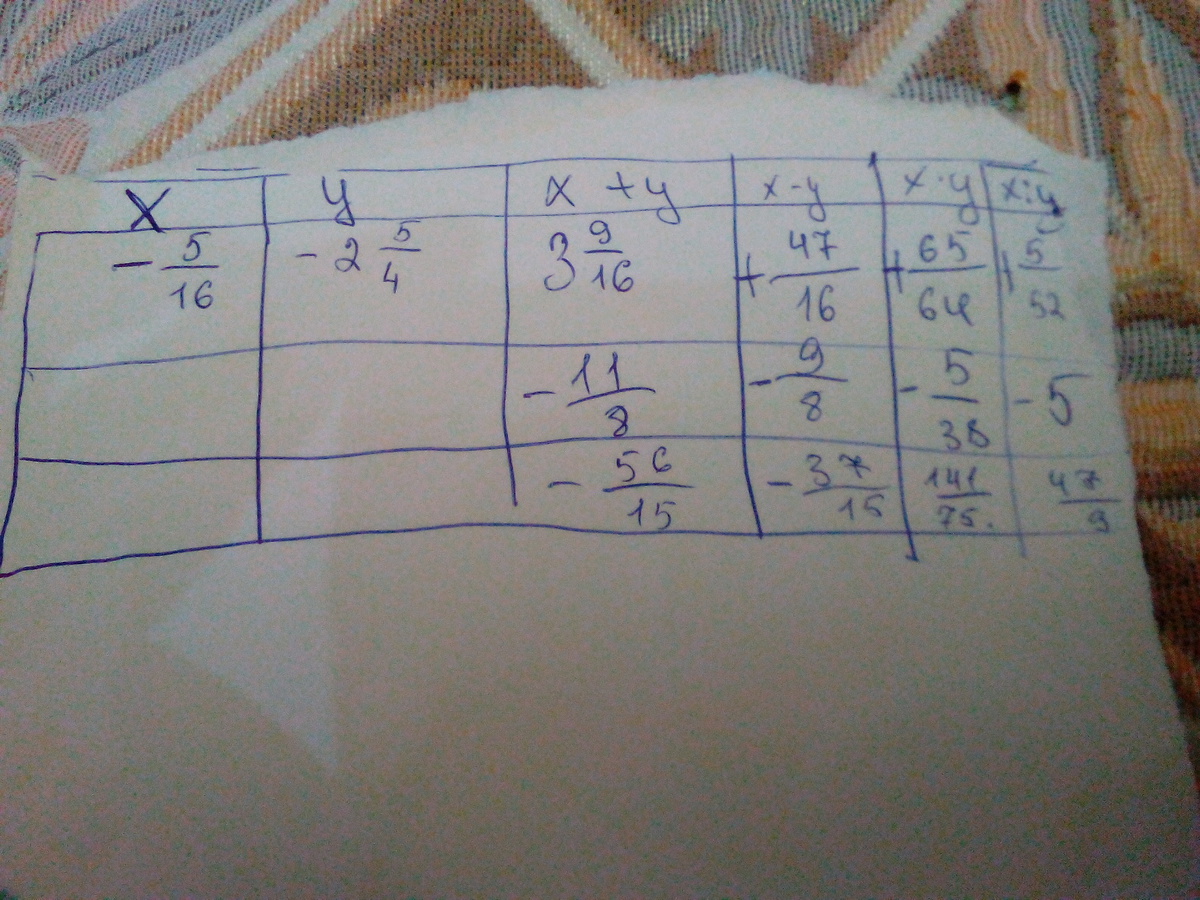 x y x + y x - y x · y x : y
- 5/16 - 2 5/4 3 9/16 + 47/16 + 65/64 + 5/52
- 11/8 - 9/8 - 5/38 - 5
- 56/15 - 37/15 141/75. 47/9